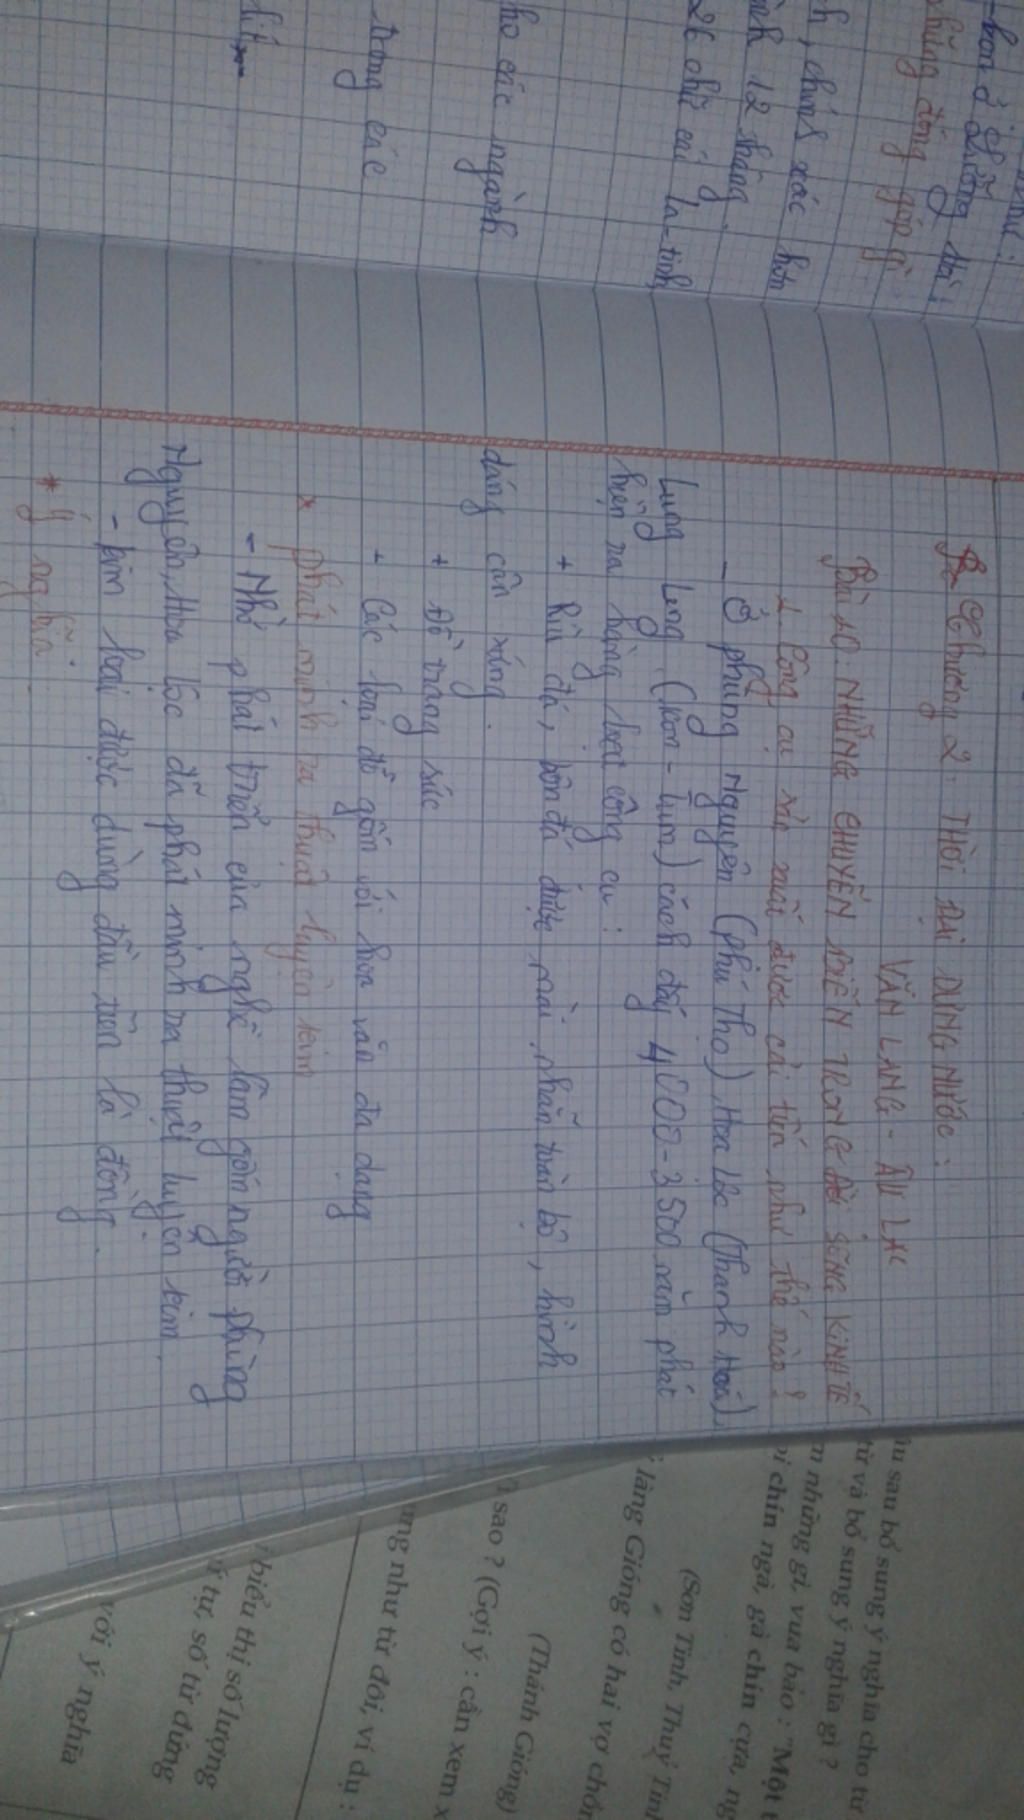 hơn ở những
những đóng góp gì
h, chính xác hơn
12 tháng.
26 chữ cái la-tinh,
ho các ngành
trong các
Chương 2: THỜI ĐẠI DỰNG NƯỚC:
VĂN LANG - ÂU LẠC
Bài 10: NHỮNG CHUYỂN BIẾN TRONG ĐỜI SỐNG KINH TẾ
1. Công cụ sản xuất được cải tiến như thế nào?
- Ở phùng Nguyên (phú Thọ), Hoa Lộc (Thanh Hoá),
Lung Leng (Kon-tum) cách đây 4000-3500 năm phát
hiện ra hàng loạt công cụ:
+ Rìu đá, bôn đá được mài nhẵn toàn bộ, hình
dáng cân xứng.
+ Đồ trang sức
+ Các loại đồ gốm với hoa văn đa dạng
* phát minh ra thuật luyện kim
- Nhờ phát triển của nghề làm gốm người phùng
Nguyên, Hoa Lộc đã phát minh ra thuật luyện kim.
- kim loại được dùng đầu tiên là đồng.
* ý nghĩa:
u sau bổ sung ý nghĩa cho từ
từ và bổ sung ý nghĩa gì ?
những gì, vua bảo : "Một
chín ngà, gà chín cựa,
(Sơn Tinh, Thuỷ Tinh
làng Gióng có hai vợ chồn
(Thánh Gióng)
sao ? (Gợi ý : cần xem x
ưng như từ đôi, ví dụ :
biểu thị số lượng
ý tự, số từ đứng
với ý nghĩa